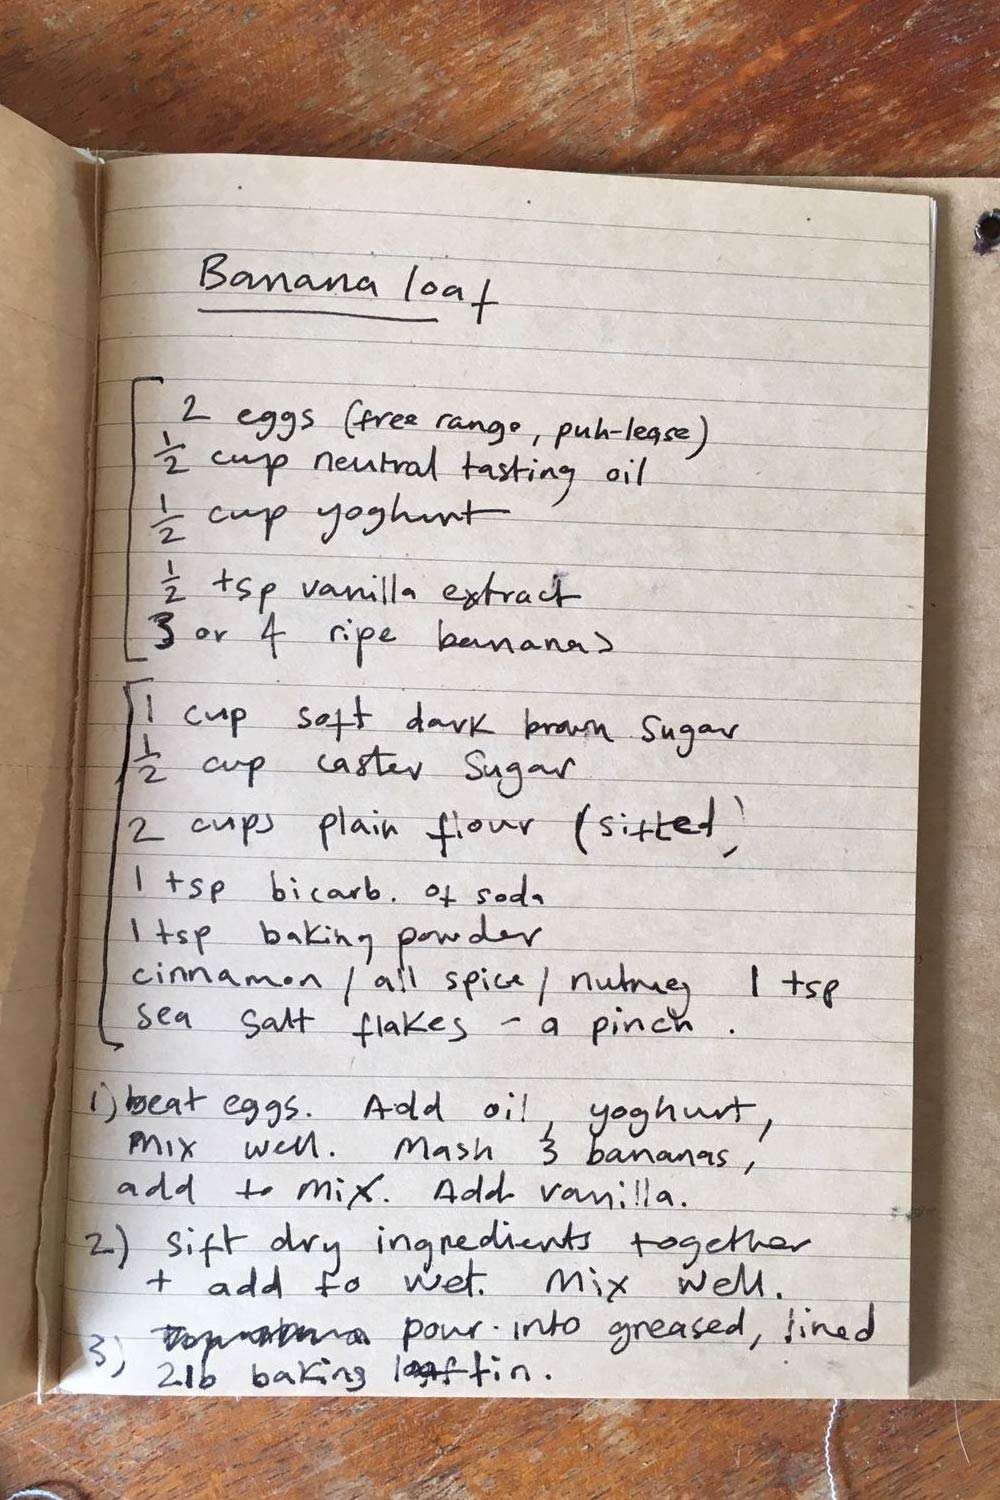 Banana loaf
2 eggs (free range, puh-lease)
1/2 cup neutral tasting oil
1/2 cup yoghurt
1/2 tsp vanilla extract
3 or 4 ripe bananas
1 cup soft dark brown sugar
1/2 cup caster sugar
2 cups plain flour (sifted)
1 tsp bicarb. of soda
1 tsp baking powder
cinnamon / all spice / nutmeg 1 tsp
sea salt flakes - a pinch.
1) beat eggs. Add oil, yoghurt,
mix well. Mash 3 bananas,
add to mix. Add vanilla.
2) sift dry ingredients together
+ add to wet. Mix well.
3) pour into greased, lined
2lb baking tin.